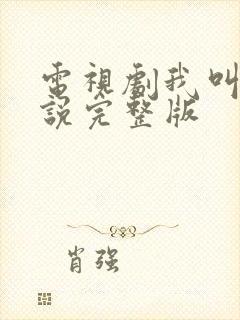 電視劇我叫
說完整版
肖强